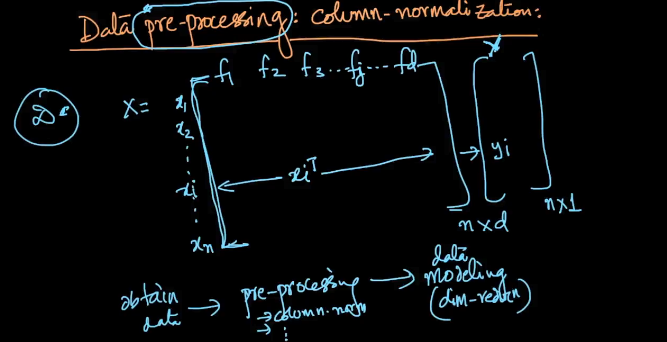 Data pre-processing: column-normalization:
f1 f2 f3...fj...fd y
D X= x1
x2
⋮
xi xiᵀ → yi
⋮
xn
n×d n×1
obtain data → pre-processing → data modeling (dim-redtn)
→ column-norm
→ ⋮